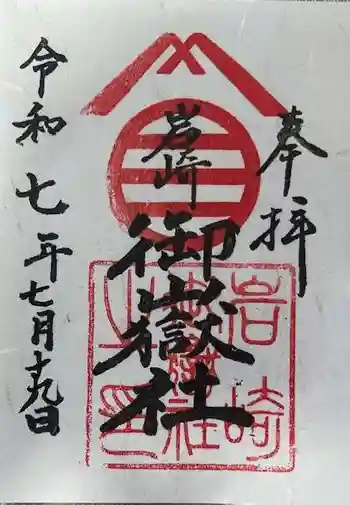 奉拝
岩崎
御嶽社
令和七年七月十九日
岩崎
御嶽社
之印